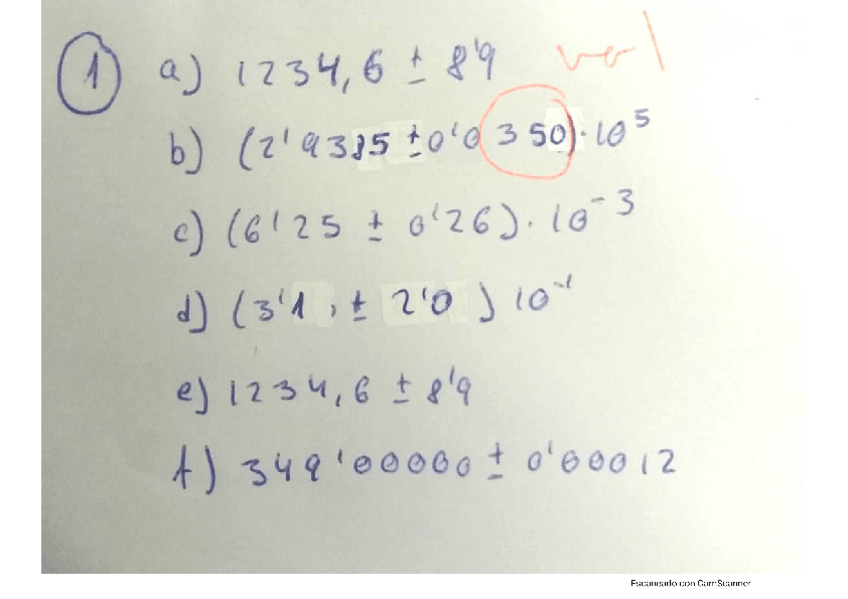 1 a) 1234,6 ± 8'9 mal
b) (2'9385 ± 0'0350)·10⁵
c) (6'25 ± 0'26)·10⁻³
d) (3'1 , ± 2'0 ) 10⁻¹
e) 1234,6 ± 8'9
f) 349'00000 ± 0'00012
Escaneado con CamScanner